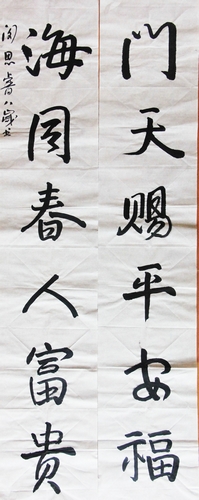 门天赐平安福
海同春人富贵
思睿八岁书